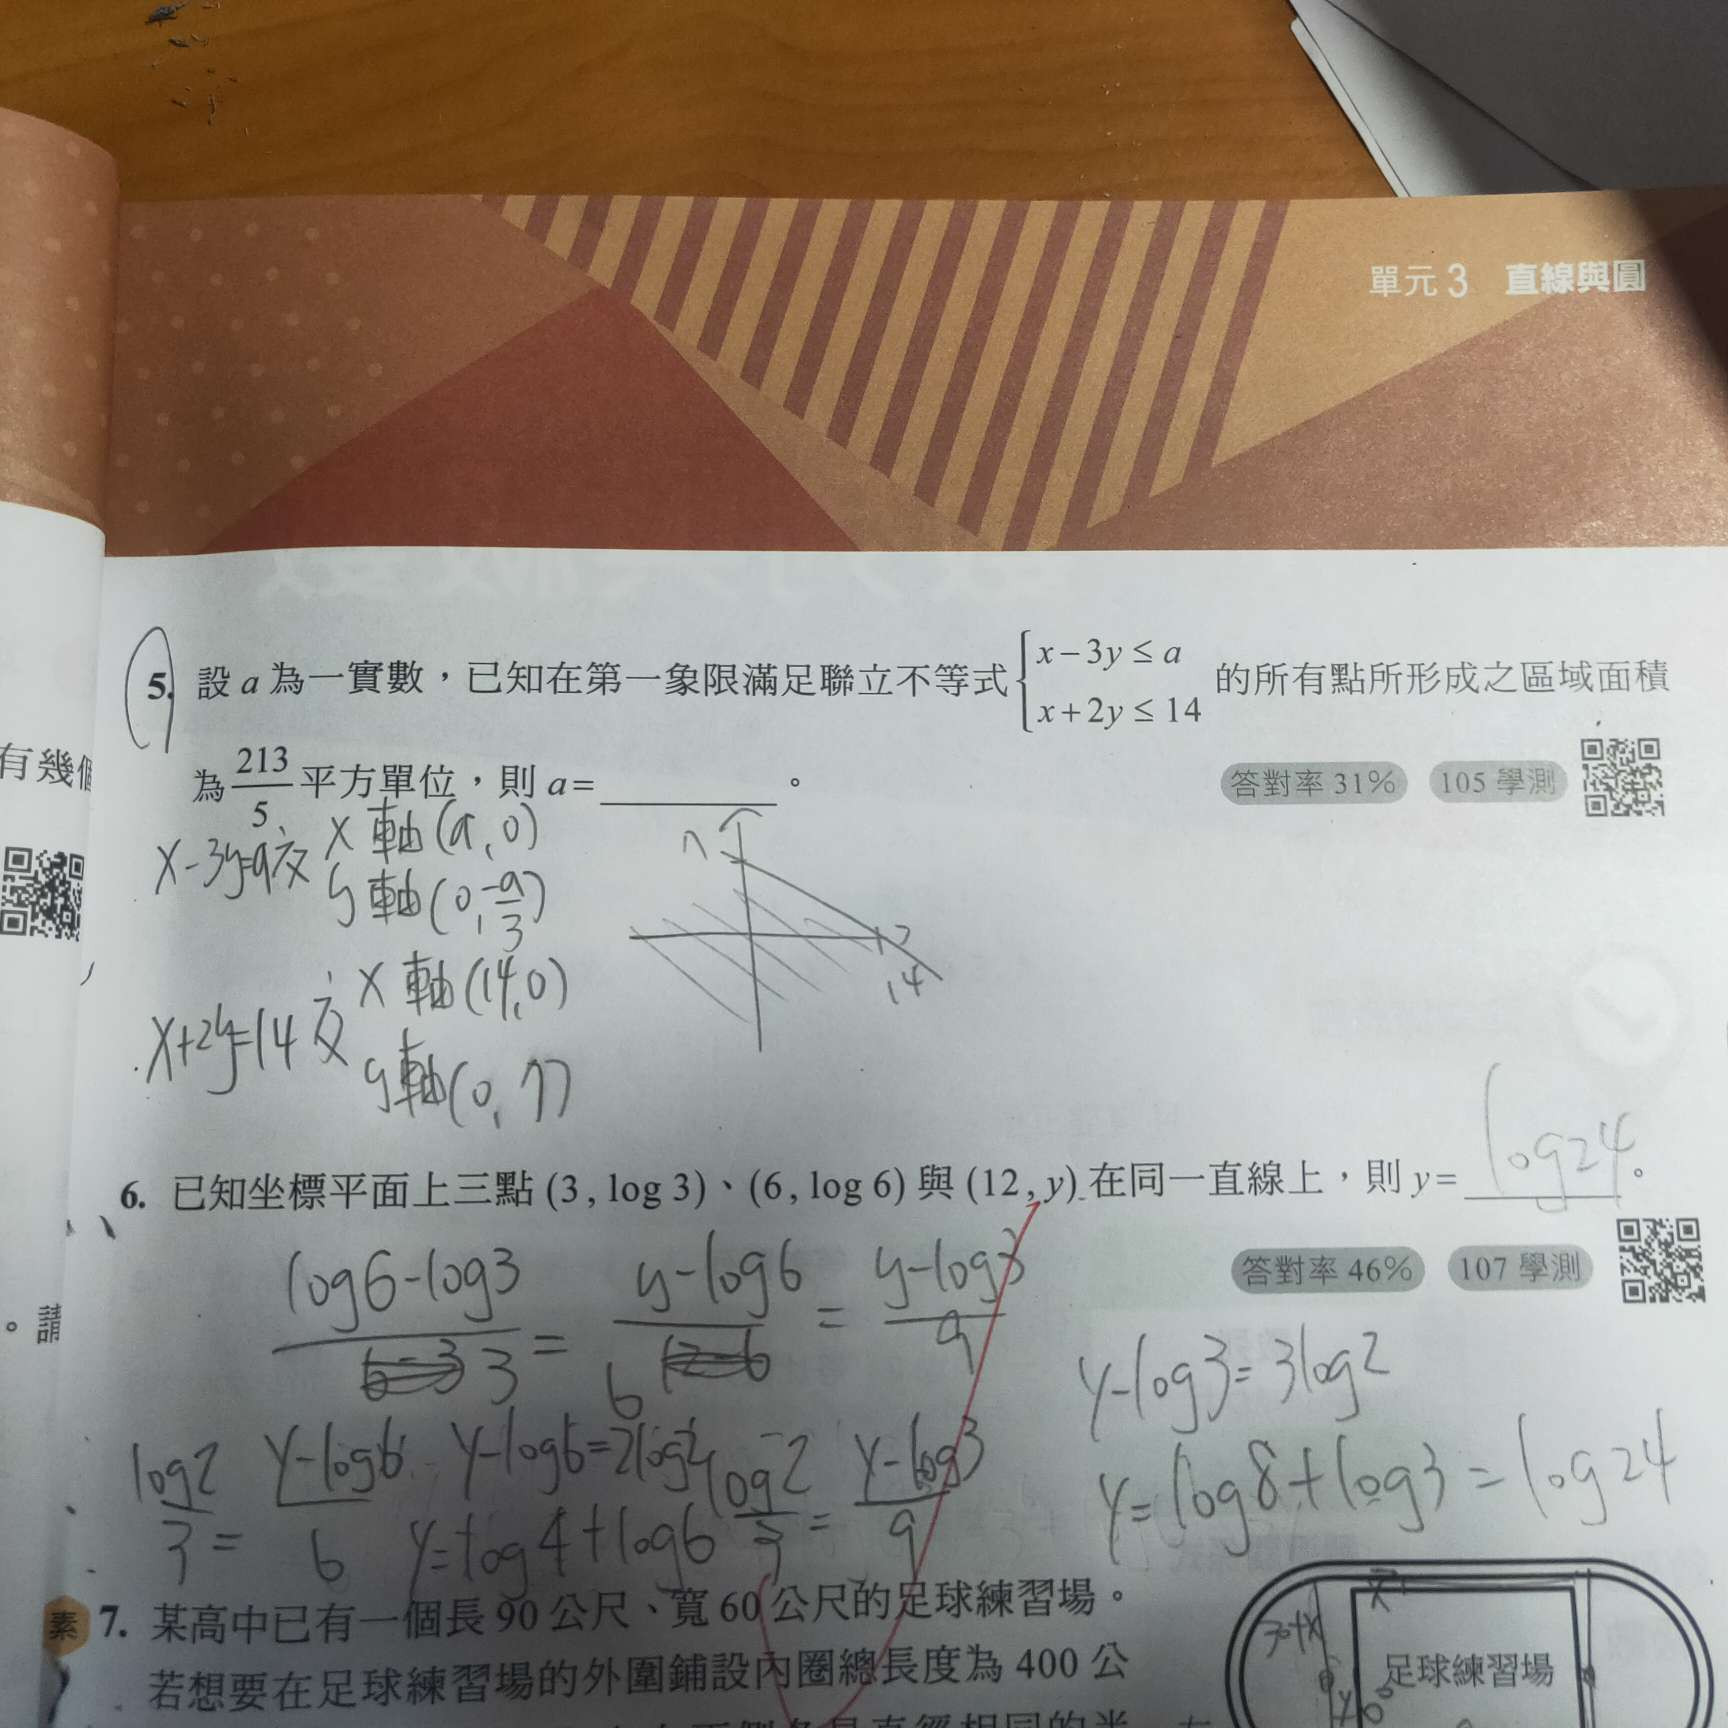 單元3 直線與圓
5. 設 a 為一實數，已知在第一象限滿足聯立不等式 { x－3y ≤ a
x＋2y ≤ 14 的所有點所形成之區域面積
有幾個
為 213/5 平方單位，則 a＝________。
答對率 31% 105 學測
x-3y=a交 x軸(a,0)
y軸(0,-a/3)
7
14
x+2y=14交 x軸(14,0)
y軸(0,7)
6. 已知坐標平面上三點 (3, log 3)、(6, log 6) 與 (12, y) 在同一直線上，則 y＝ log24 。
答對率 46% 107 學測
。請
log6-log3/3 = y-log6/6 = y-log3/9
y-log3=3log2
log2/3 = y-log6/6 y-log6=2log2 log2/3 = y-log3/9
y=log4+log6
y=log8+log3=log24
素 7. 某高中已有一個長 90 公尺、寬 60 公尺的足球練習場。
若想要在足球練習場的外圍鋪設內圈總長度為 400 公
足球練習場